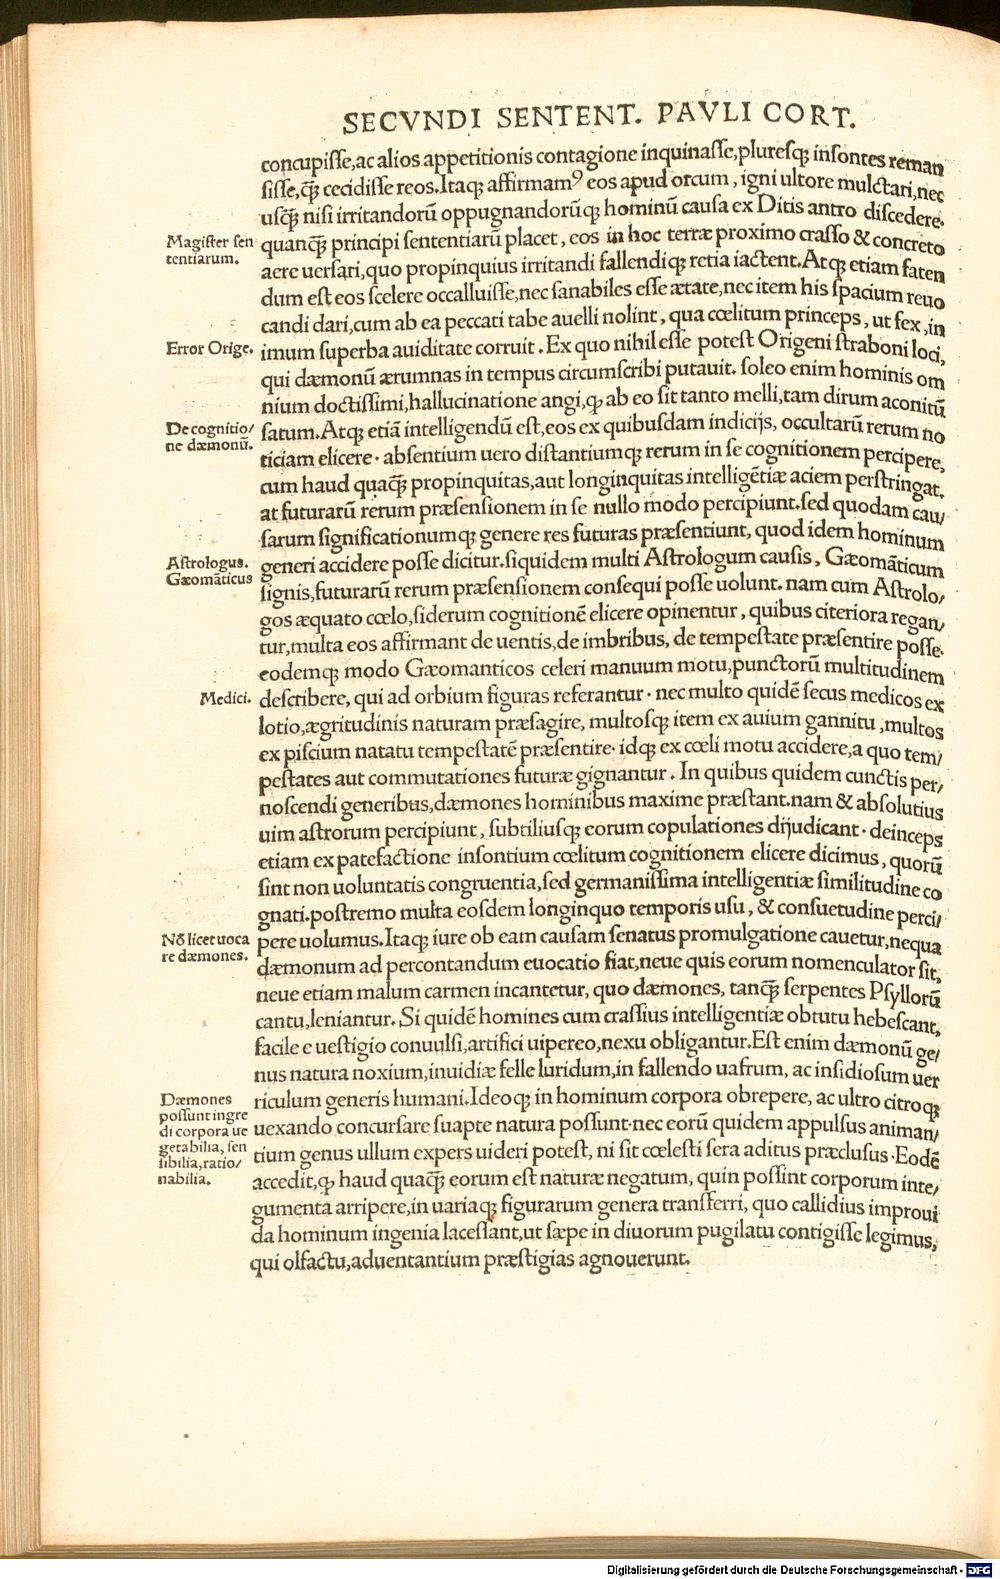 SECVNDI SENTENT. PAVLI CORT.
concupiſſe,ac alios appetitionis contagione inquinaſſe,pluresqꝫ inſontes reman
ſiſſe,qꝫ̄ cecidiſſe reos.Itaqꝫ affirmamꝰ eos apud orcum, igni ultore mulctari,nec
uſqꝫ̄ niſi irritandorū oppugnandorūqꝫ hominū cauſa ex Ditis antro diſcedere.
Magiſter ſen
tentiarum.
quanqꝫ̄ principi ſententiarū placet, eos in hoc terræ proximo craſſo & concreto
aere uerſari,quo propinquius irritandi fallendiqꝫ retia iactent.Atqꝫ etiam faten
dum eſt eos ſcelere occalluiſſe,nec ſanabiles eſſe ætate,nec item his ſpacium reuo
candi dari,cum ab ea peccati tabe auelli nolint, qua cœlitum princeps, ut fex,in
Error Orige.
imum ſuperba auiditate corruit. Ex quo nihil eſſe poteſt Origeni ſtraboni loci,
qui dæmonū ærumnas in tempus circumſcribi putauit. ſoleo enim hominis om
nium doctiſſimi,hallucinatione angi,ꝙ ab eo ſit tanto melli,tam dirum aconitū
De cognitio/
ne dæmonū.
ſatum.Atqꝫ etiā intelligendū eſt,eos ex quibuſdam indicijs, occultarū rerum no
ticiam elicere. abſentium uero diſtantiumqꝫ rerum in ſe cognitionem percipere,
cum haud quaqꝫ̄ propinquitas,aut longinquitas intelligētiæ aciem perſtringat.
at futurarū rerum præſenſionem in ſe nullo modo percipiunt.ſed quodam cau/
ſarum ſignificationumqꝫ genere res futuras præſentiunt, quod idem hominum
Aſtrologus.
Gæomāticus
generi accidere poſſe dicitur.ſiquidem multi Aſtrologum cauſis, Gæomāticum
ſignis,futurarū rerum præſenſionem conſequi poſſe uolunt. nam cum Aſtrolo/
gos æquato cœlo,ſiderum cognitionē elicere opinentur, quibus citeriora regan/
tur,multa eos affirmant de uentis,de imbribus, de tempeſtate præſentire poſſe.
eodemqꝫ modo Gæomanticos celeri manuum motu,punctorū multitudinem
Medici.
deſcribere, qui ad orbium figuras referantur. nec multo quidē ſecus medicos ex
lotio,ægritudinis naturam præſagire, multosqꝫ item ex auium gannitu, multos
ex piſcium natatu tempeſtatē præſentire. idqꝫ ex cœli motu accidere,a quo tem/
peſtates aut commutationes futuræ gignantur. In quibus quidem cunctis per/
noſcendi generibus,dæmones hominibus maxime præſtant.nam & abſolutius
uim aſtrorum percipiunt, ſubtiliusqꝫ eorum copulationes dijudicant. deinceps
etiam ex patefactione inſontium cœlitum cognitionem elicere dicimus, quorū
ſint non uoluntatis congruentia,ſed germaniſſima intelligentiæ ſimilitudine co
gnati.poſtremo multa eoſdem longinquo temporis uſu, & conſuetudine perci/
Nō licet uoca
re dæmones.
pere uolumus.Itaqꝫ iure ob eam cauſam ſenatus promulgatione cauetur,nequa
dæmonum ad percontandum euocatio fiat,neue quis eorum nomenculator ſit,
neue etiam malum carmen incantetur, quo dæmones, tanqꝫ̄ ſerpentes Pſyllorū
cantu,leniantur. Si quidē homines cum craſſius intelligentiæ obtutu hebeſcant,
facile e ueſtigio conuulſi,artifici uipereo,nexu obligantur.Eſt enim dæmonū ge/
nus natura noxium,inuidiæ felle luridum,in fallendo uafrum, ac inſidioſum uer
Dæmones
poſſunt ingre
di corpora ue
getabilia, ſen
ſibilia,ratio/
nabilia.
riculum generis humani.Ideoqꝫ in hominum corpora obrepere, ac ultro citroqꝫ
uexando concurſare ſuapte natura poſſunt.nec eorū quidem appulſus animan/
tium genus ullum expers uideri poteſt, ni ſit cœleſti ſera aditus præcluſus.Eodē
accedit,ꝙ haud quaqꝫ̄ eorum eſt naturæ negatum, quin poſſint corporum inte/
gumenta arripere,in uariaqꝫ figurarum genera transferri, quo callidius improui
da hominum ingenia laceſſant,ut ſæpe in diuorum pugilatu contigiſſe legimus,
qui olfactu,aduentantium præſtigias agnouerunt.
Digitalisierung gefördert durch die Deutsche Forschungsgemeinschaft - DFG